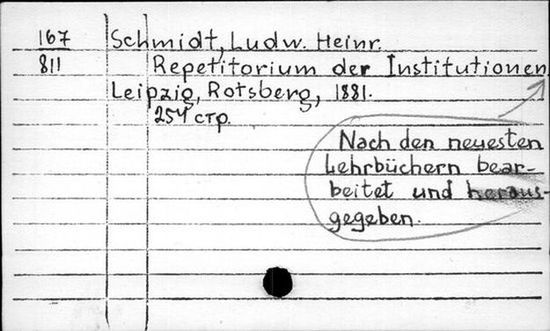 167 Schmidt, Ludw. Heinr.
811 Repetitorium der Institutionen
Leipzig, Rotsberg, 1881.
254 стр.
Nach den neuesten
Lehrbüchern bear-
beitet und heraus-
gegeben.